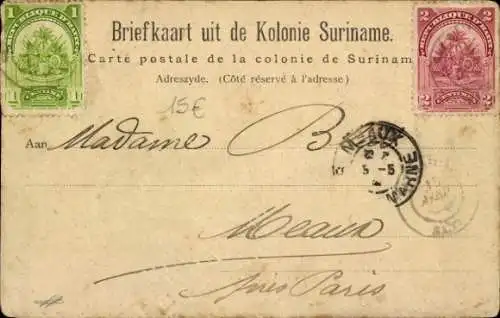 1 REPUBLIQUE D'HAITI 1
2 REPUBLIQUE D'HAITI 2
Briefkaart uit de Kolonie Suriname.
Carte postale de la colonie de Surinam
Adreszyde. (Côté réservé à l'adresse)
1 1
2 2
15€
Aan Madame B
MEAUX
5-5
MARNE
Meaux
Près Paris